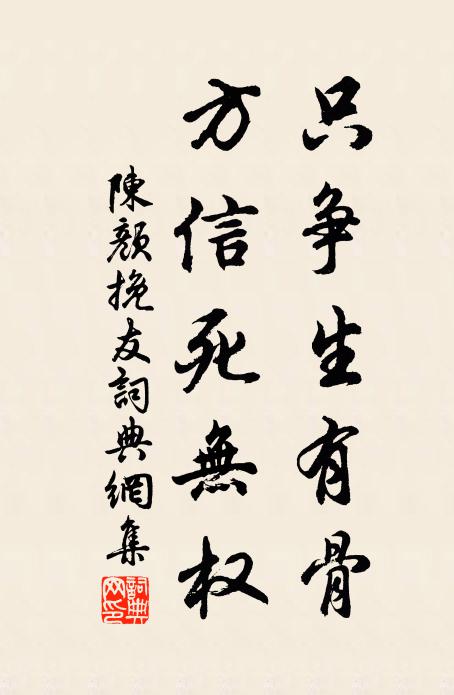 只争生有骨
方信死無权
陳顔挽友詞典網集
詞典网印